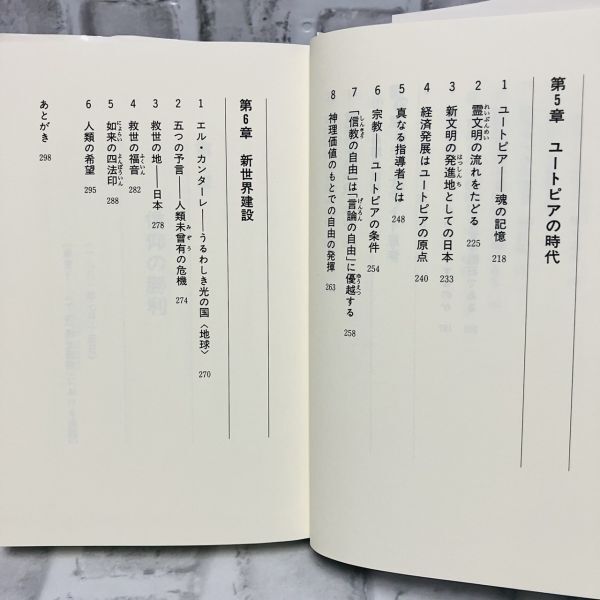 第5章 ユートピアの時代
1 ユートピア――魂の記憶 218
2 霊文明の流れをたどる 225
3 新文明の発進地としての日本 233
4 経済発展はユートピアの原点 240
5 真なる指導者とは 248
6 宗教――ユートピアの条件 254
7 「信教の自由」は「言論の自由」に優越する 258
8 神理価値のもとでの自由の発揮 263
第6章 新世界建設
1 エル・カンターレ――うるわしき光の国〈地球〉 270
2 五つの予言――人類未曾有の危機 274
3 救世の地――日本 278
4 救世の福音 282
5 如来の四法印 288
6 人類の希望 295
あとがき 298